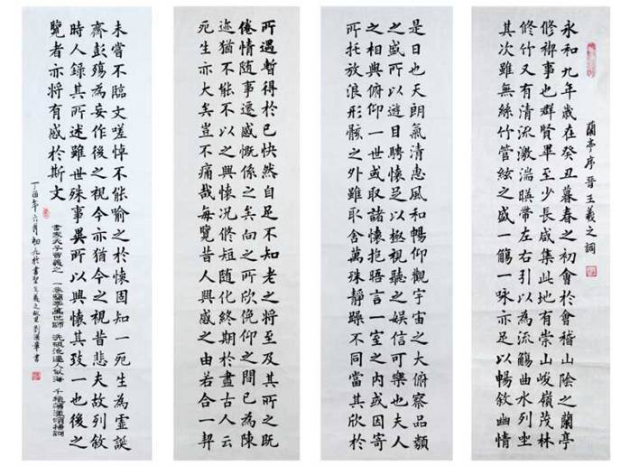 蘭亭序晉王羲之詞
永和九年歲在癸丑暮春之初會於會稽山陰之蘭亭
修禊事也群賢畢至少長咸集此地有崇山峻嶺茂林
修竹又有清流激湍暎帶左右引以為流觴曲水列坐
其次雖無絲竹管絃之盛一觴一咏亦足以暢敘幽情
是日也天朗氣清惠風和暢仰觀宇宙之大俯察品類
之盛所以遊目騁懷足以極視聽之娛信可樂也夫人
之相與俯仰一世或取諸懷抱晤言一室之內或因寄
所托放浪形骸之外雖取舍萬殊靜躁不同當其欣於
所遇暫得於己快然自足不知老之將至及其所之既
倦情隨事遷感慨係之矣向之所欣俛仰之間已為陳
迹猶不能不以之興懷況修短隨化終期於盡古人云
死生亦大矣豈不痛哉每覽昔人興感之由若合一契
未嘗不臨文嗟悼不能喻之於懷固知一死生為虛誕
齊彭殤為妄作後之視今亦猶今之視昔悲夫故列敘
時人錄其所述雖世殊事異所以興懷其致一也後之
覽者亦將有感於斯文
夫子晉羲之 萬世師 洗硯池邊人似海 千
丁酉年六月初九於書聖王羲之故里劉 書